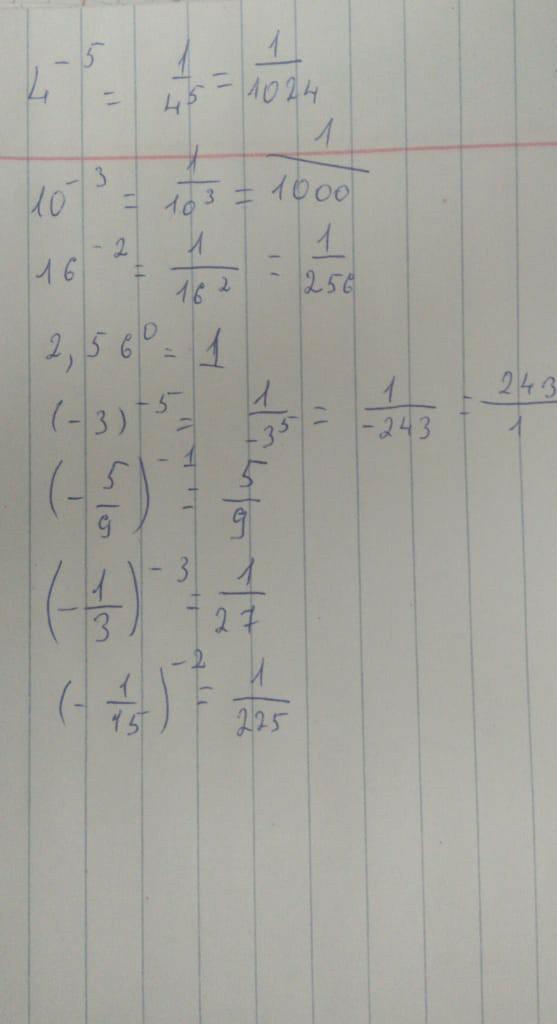 4^-5 = 1/4^5 = 1/1024
10^-3 = 1/10^3 = 1/1000
16^-2 = 1/16^2 = 1/256
2,56^0 = 1
(-3)^-5 = 1/-3^5 = 1/-243 = 243/1
(-5/9)^-1 = 5/9
(-1/3)^-3 = 1/27
(-1/15)^-2 = 1/225